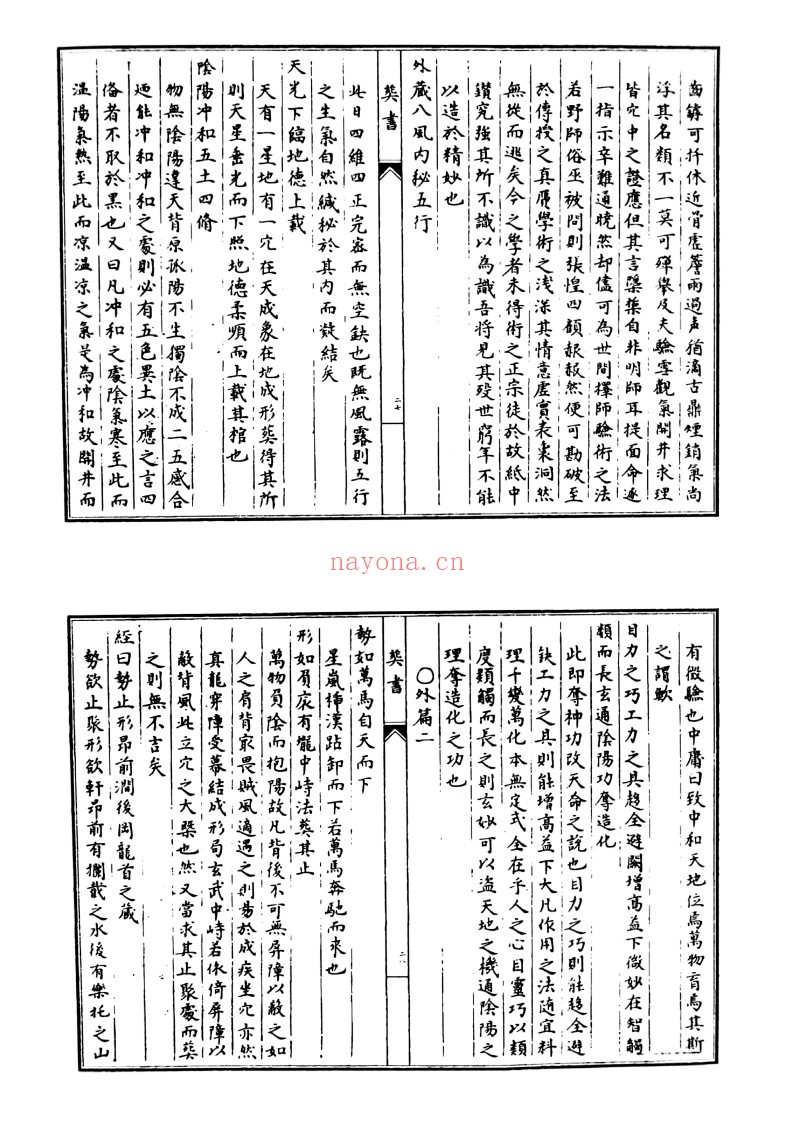 齒鏬可扦休近骨虛簷雨過声猶滴古鼎煙銷氣尚
浮其名類不一莫可殫舉及夫驗雪觀氣開井求理
皆穴中之證應但其言槩集自非明師耳提面命逐
一指示卒難通曉然却儘可為世間擇師驗術之法
若野師俗巫被問則張惶四顧赧赧然便可勘破至
於傳授之真贋學術之浅深其情意虛實表裏洞然
無從而逃矣今之學者未得術之正宗徒於故紙中
鑽究強其所不識以為識吾將見其殁世窮年不能
以造於精妙也
外藏八風内秘五行
葬書
二七
此日四維四正完密而無空缺也既無風露則五行
之生氣自然緘秘於其内而凝結矣
天光下臨地德上載
天有一星地有一穴在天成象在地成形葬得其所
則天星垂光而下照地德柔順而上載其棺也
陰陽冲和五土四備
物無陰陽違天背原孤陽不生獨陰不成二五感合
廼能冲和冲和之處則必有五色異土以應之言四
俻者不取於黒也又曰凡冲和之處陰氣寒至此而
温陽氣熱至此而凉温凉之氣是為冲和故開井而
nayona.cn
有徵驗也中庸曰致中和天地位焉萬物育焉其斯
之謂歟
目力之巧工力之具趨全避闕增高益下微妙在智觸
類而長玄通陰陽功奪造化
此即奪神功改天命之說也目力之巧則能趨全避
缺工力之具則能增高益下大凡作用之法隨宜料
理千變萬化本無定式全在乎人之心目靈巧以類
度類觸而長之則玄妙可以盗天地之機通陰陽之
理奪造化之功也
○外篇二
葬書
勢如萬馬自天而下
星嵐揷漢跕卸而下若萬馬奔馳而來也
形如負扆有壠中峙法葬其止
萬物負陰而抱陽故凡背後不可無屏障以蔽之如
人之肩背㝡畏賊風適遇之則易於成疾坐穴亦然
真龍穿障受幕結成形局玄武中峙若依倚屏障以
蔽背風此立穴之大槩也然又當求其止聚處而葬
之則無不吉矣
經曰勢止形昂前澗後岡龍首之藏
勢欲止聚形欲軒昂前有攔截之水後有樂托之山